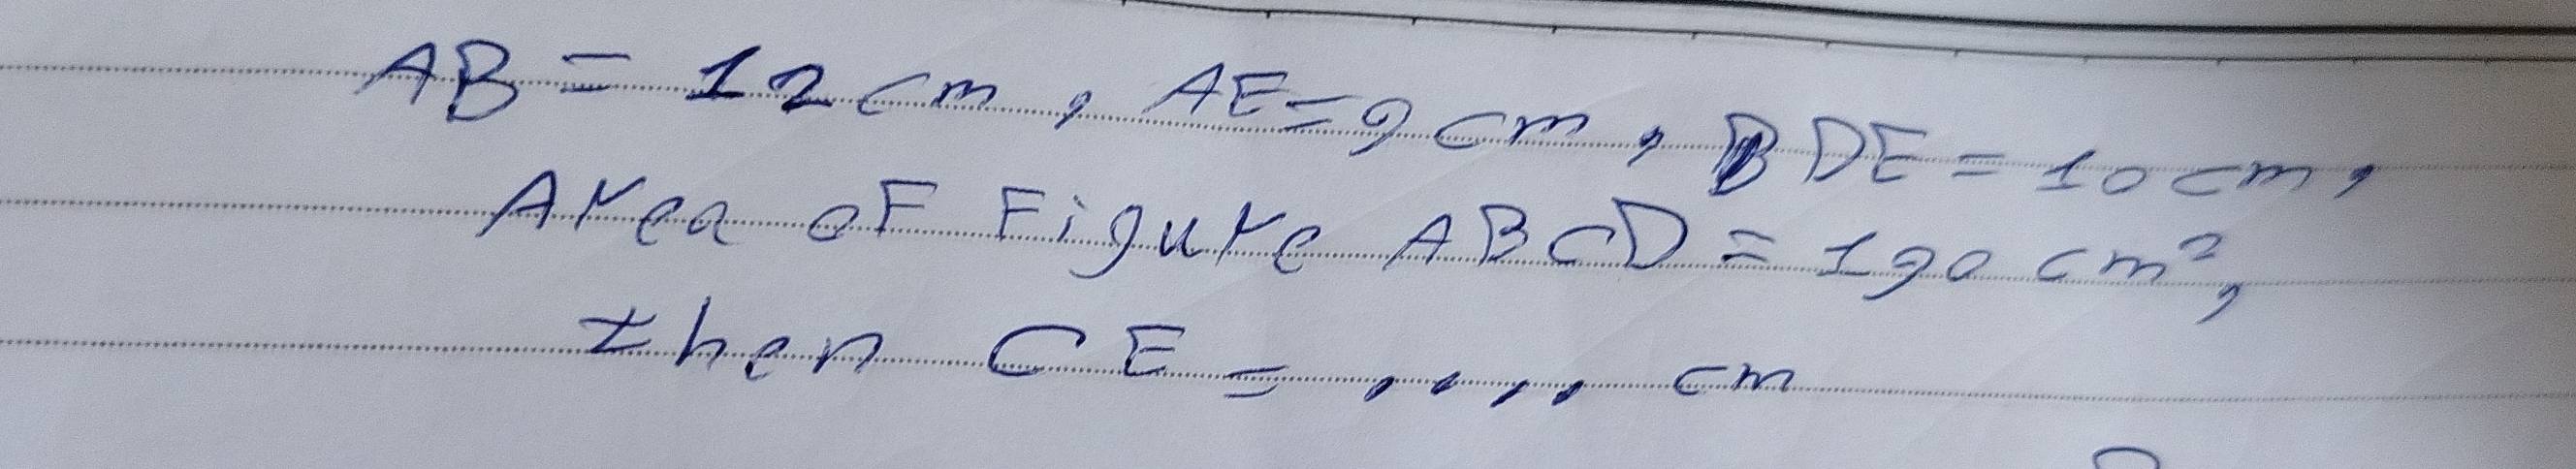 AB = 12 cm, AE = 9 cm, DE = 10 cm,
Area of Figure ABCD = 190 cm²,
then CE = .... cm